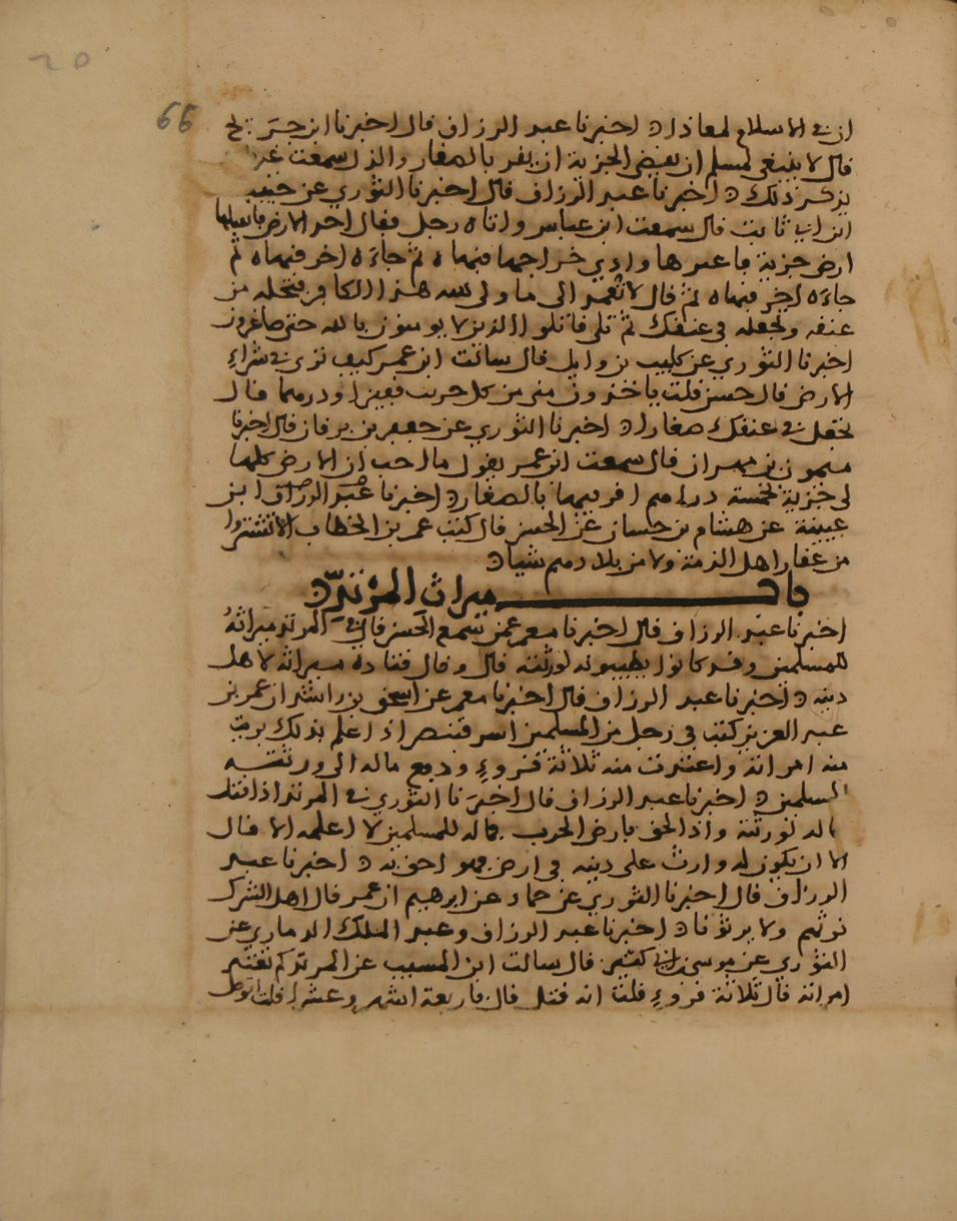 66
ان في الاسلام لمعاذا د اخبرنا عبد الرزاق قال اخبرنا ابن جريج
قال لا ينبغي لمسلم ان يعطي الجزية ان يقر بالصغار والذل سمعت
يذكر ذلك د اخبرنا عبد الرزاق قال اخبرنا الثوري عن حبيب
ابن ابي ثابت قال سمعت ابن عباس واتاه رجل فقال اخذ الارض فاتقبلها
ارض جزية فاعمرها واودي خراجها فنهاه ثم جاءه اخر فنهاه ثم
جاءه اخر فنهاه ثم قال لا تعمد الى ما ولى الله هذا الكافر فتحله من
عنقه وتجعله في عنقك ثم تلى قاتلوا الذين لا يومنون بالله حتى صاغرون
اخبرنا الثوري عن كليب بن وايل قال سالت ابن عمر كيف ترى في شراء
الارض قال حسن قلت ياخذون مني من كل جريب قفيزا ودرهما قال
تجعل في عنقك صغارا د اخبرنا الثوري عن جعفر بن برقان قال اخبرنا
ميمون بن مهران قال سمعت ابن عمر يقول ما احب ان الارض كلها
لي جزية بخمسة دراهم اقر فيها بالصغار د اخبرنا عبد الرزاق ابن
عيينة عن هشام بن حسان عن الحسن قال كتب عمر بن الخطاب الا تشتروا
من عقار اهل الذمة ولا من بلادهم شيا د
باب ميراث المرتد
اخبرنا عبد الرزاق قال اخبرنا معمر عمن سمع الحسن قال في المرتد ميراثه
للمسلمين وقد كانوا يطيبونه لورثته قال وقال قتادة ميراثه لاهل
دينه د اخبرنا عبد الرزاق قال اخبرنا معمر عن اسحق بن راشد ان عمر بن
عبد العزيز كتب في رجل من المسلمين اسر فتنصر اذا علم بذلك بريت
منه امراته واعتدت منه ثلاثة قروء ودفع ماله الى ورثته
المسلمين د اخبرنا عبد الرزاق قال اخبرنا الثوري في المرتد اذا قتل
ماله لورثته واذا لحق بارض الحرب فماله للمسلمين لا اعلمه الا قال
الا ان يكون له وارث على دينه في ارض فهو احق به د اخبرنا عبد
الرزاق قال اخبرنا الثوري عن حماد عن ابرهيم ان عمر قال اهل الشرك
نرثهم ولا يرثونا د اخبرنا عبد الرزاق وعبد الملك الذماري عن
الثوري عن موسى بن ابي كثير قال سالت ابن المسيب عن المرتد كم تعتد
امراته قال ثلاثة قروء قلت انه قتل قال فاربعة اشهر وعشرا قلت